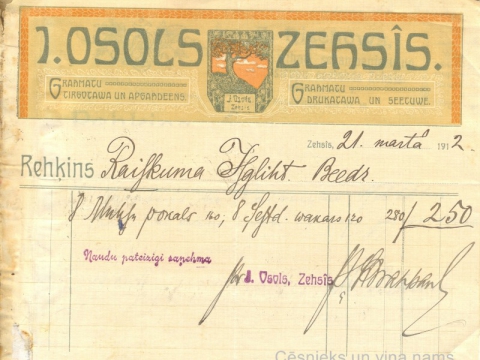 J. OSOLS ZEHSÎS.
GRAHMATU TIRGOTAWA UN APGAHDEENS.
J. Osols Zehsis
GRAHMATU DRUKATAWA UN SEETUWE.
Zehsîs, 21. martâ 1912
Reħķins Raiskuma Izgliht. Beedr.
8 120, 8 wakars 120 250/ 250
Naudu pateizigi saņehma
J. Osols, Zehsîs
Cēsnieks un viņa nams